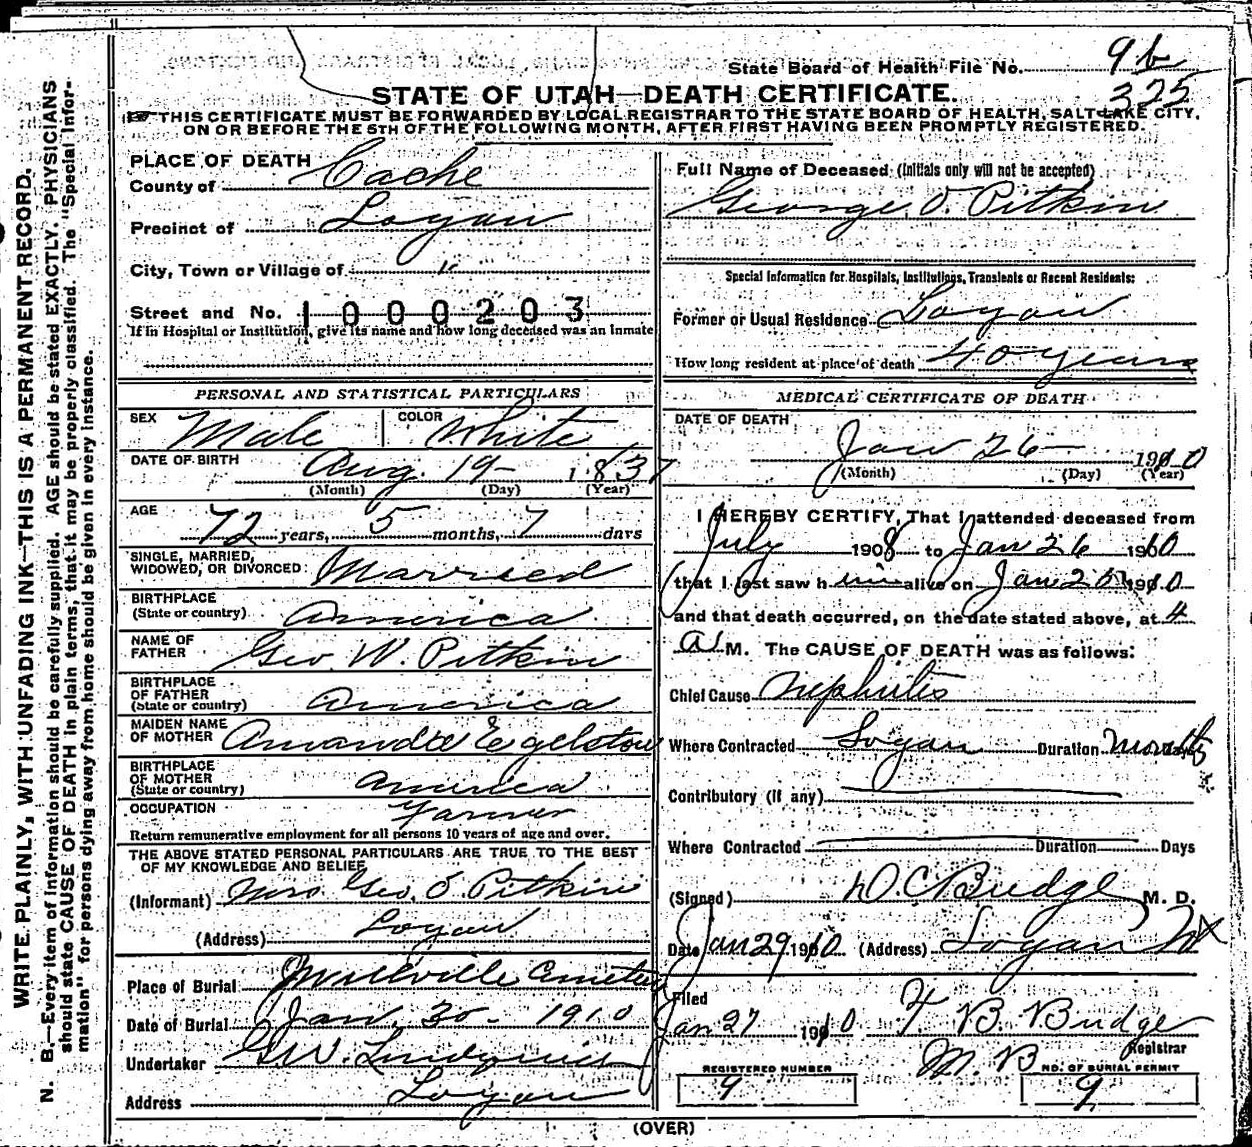 State Board of Health File No. 96
325
STATE OF UTAH—DEATH CERTIFICATE.
THIS CERTIFICATE MUST BE FORWARDED BY LOCAL REGISTRAR TO THE STATE BOARD OF HEALTH, SALT LAKE CITY,
ON OR BEFORE THE 5TH OF THE FOLLOWING MONTH, AFTER FIRST HAVING BEEN PROMPTLY REGISTERED.
WRITE PLAINLY, WITH UNFADING INK—THIS IS A PERMANENT RECORD.
N. B.—Every item of information should be carefully supplied. AGE should be stated EXACTLY. PHYSICIANS
should state CAUSE OF DEATH in plain terms, that it may be properly classified. The "Special Infor-
mation" for persons dying away from home should be given in every instance.
PLACE OF DEATH
County of Cache
Precinct of Logan
City, Town or Village of "
Street and No. 1000203
If in Hospital or Institution, give its name and how long deceased was an inmate
PERSONAL AND STATISTICAL PARTICULARS
SEX Male COLOR White
DATE OF BIRTH Aug. 19 - 1837
(Month) (Day) (Year)
AGE 72 years, 5 months, 7 days
SINGLE, MARRIED,
WIDOWED, OR DIVORCED: Married
BIRTHPLACE
(State or country) America
NAME OF
FATHER Geo. W. Pitkin
BIRTHPLACE
OF FATHER
(State or country) America
MAIDEN NAME
OF MOTHER Amanda Egelston
BIRTHPLACE
OF MOTHER
(State or country) America
OCCUPATION Farmer
Return remunerative employment for all persons 10 years of age and over.
THE ABOVE STATED PERSONAL PARTICULARS ARE TRUE TO THE BEST
OF MY KNOWLEDGE AND BELIEF
(Informant) Mrs. Geo. O. Pitkin
(Address) Logan
Place of Burial Millville Cemetery
Date of Burial Jan. 30 - 1910
Undertaker G.W. Lindquist
Address Logan
Full Name of Deceased (Initials only will not be accepted)
George O. Pitkin
Special Information for Hospitals, Institutions, Transients or Recent Residents:
Former or Usual Residence Logan
How long resident at place of death 40 years
MEDICAL CERTIFICATE OF DEATH
DATE OF DEATH
Jan 26 1910
(Month) (Day) (Year)
I HEREBY CERTIFY, That I attended deceased from
July 1908 to Jan 26 1910
that I last saw him alive on Jan 25 1910
and that death occurred, on the date stated above, at 4
a. M. The CAUSE OF DEATH was as follows:
Chief Cause Nephritis
Where Contracted Logan Duration Months
Contributory (if any)
Where Contracted Duration Days
(Signed) D C Budge M. D.
Date Jan 29 1910 (Address) Logan Ut
Filed
Jan 27 1910 F B Budge
M. B Registrar
REGISTERED NUMBER 9 NO. OF BURIAL PERMIT 9
(OVER)